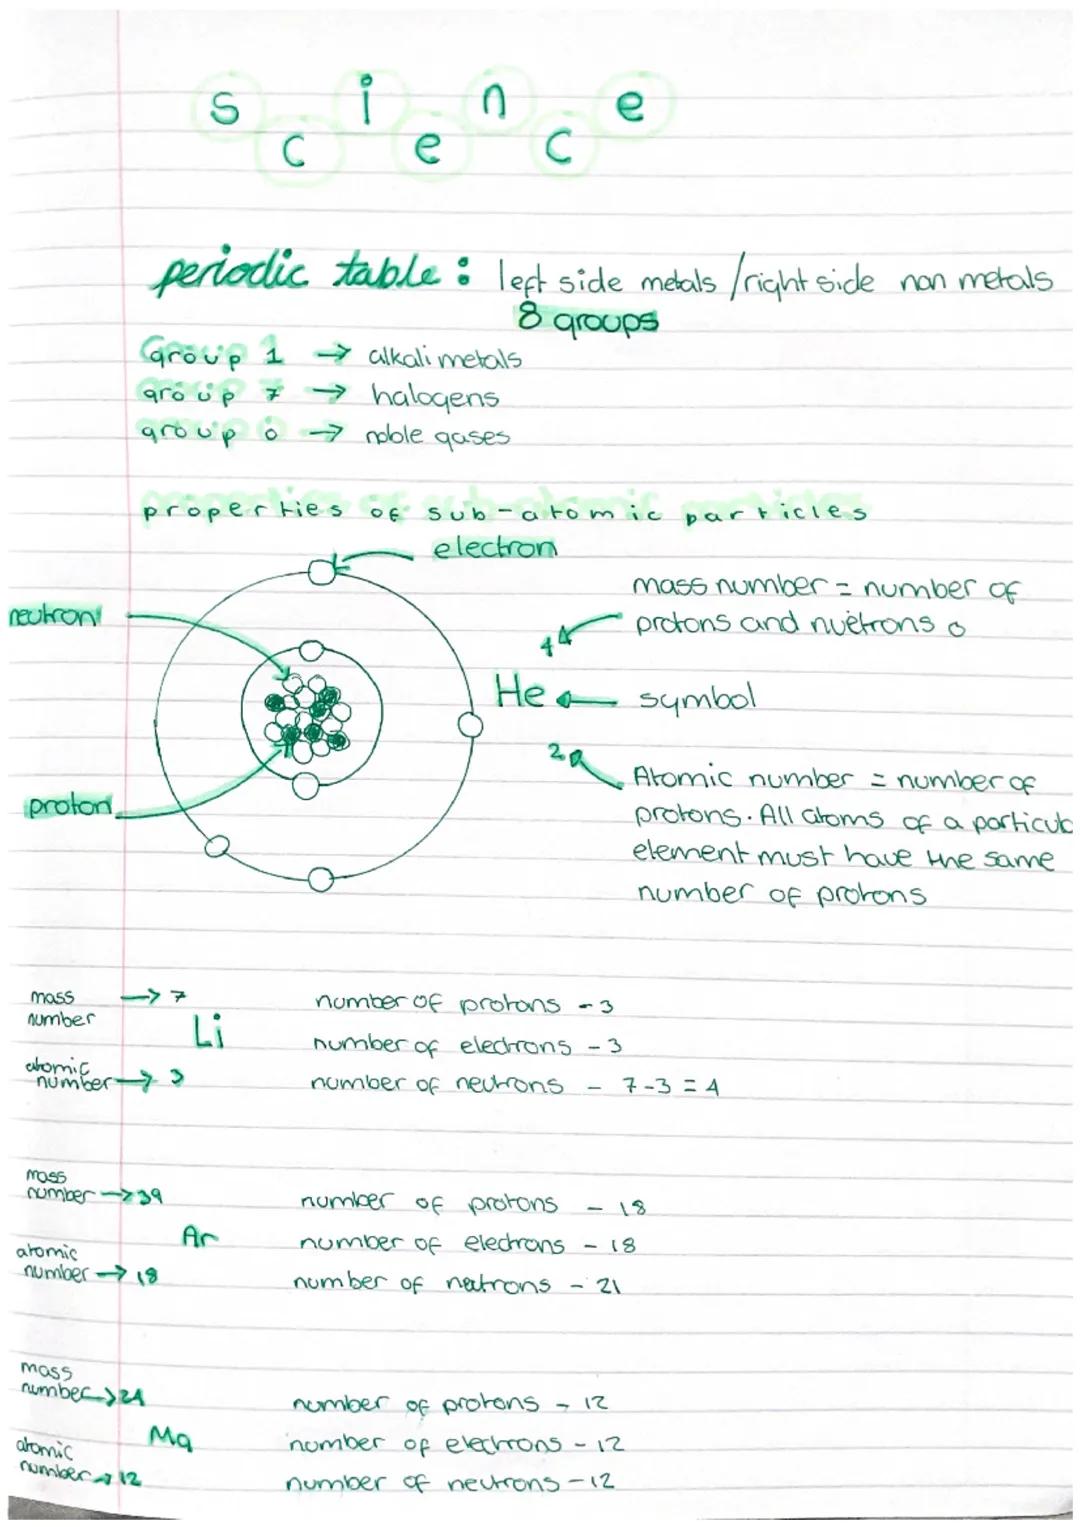 science
periodic table : left side metals / right side non metals
8 groups
Group 1 → alkali metals
group 7 → halogens
group 0 → noble gases
properties of sub-atomic particles
electron
neutron
proton
mass number = number of
protons and nuetrons
4
He ← symbol
2
Atomic number = number of
protons. All atoms of a particul
element must have the same
number of protons
mass
number → 7
Li
atomic
number → 3
number of protons - 3
number of electrons - 3
number of neutrons - 7-3 = 4
mass
number → 39
Ar
atomic
number → 18
number of protons - 18
number of electrons - 18
number of neutrons - 21
mass
number → 24
Mg
atomic
number → 12
number of protons - 12
number of electrons - 12
number of neutrons - 12